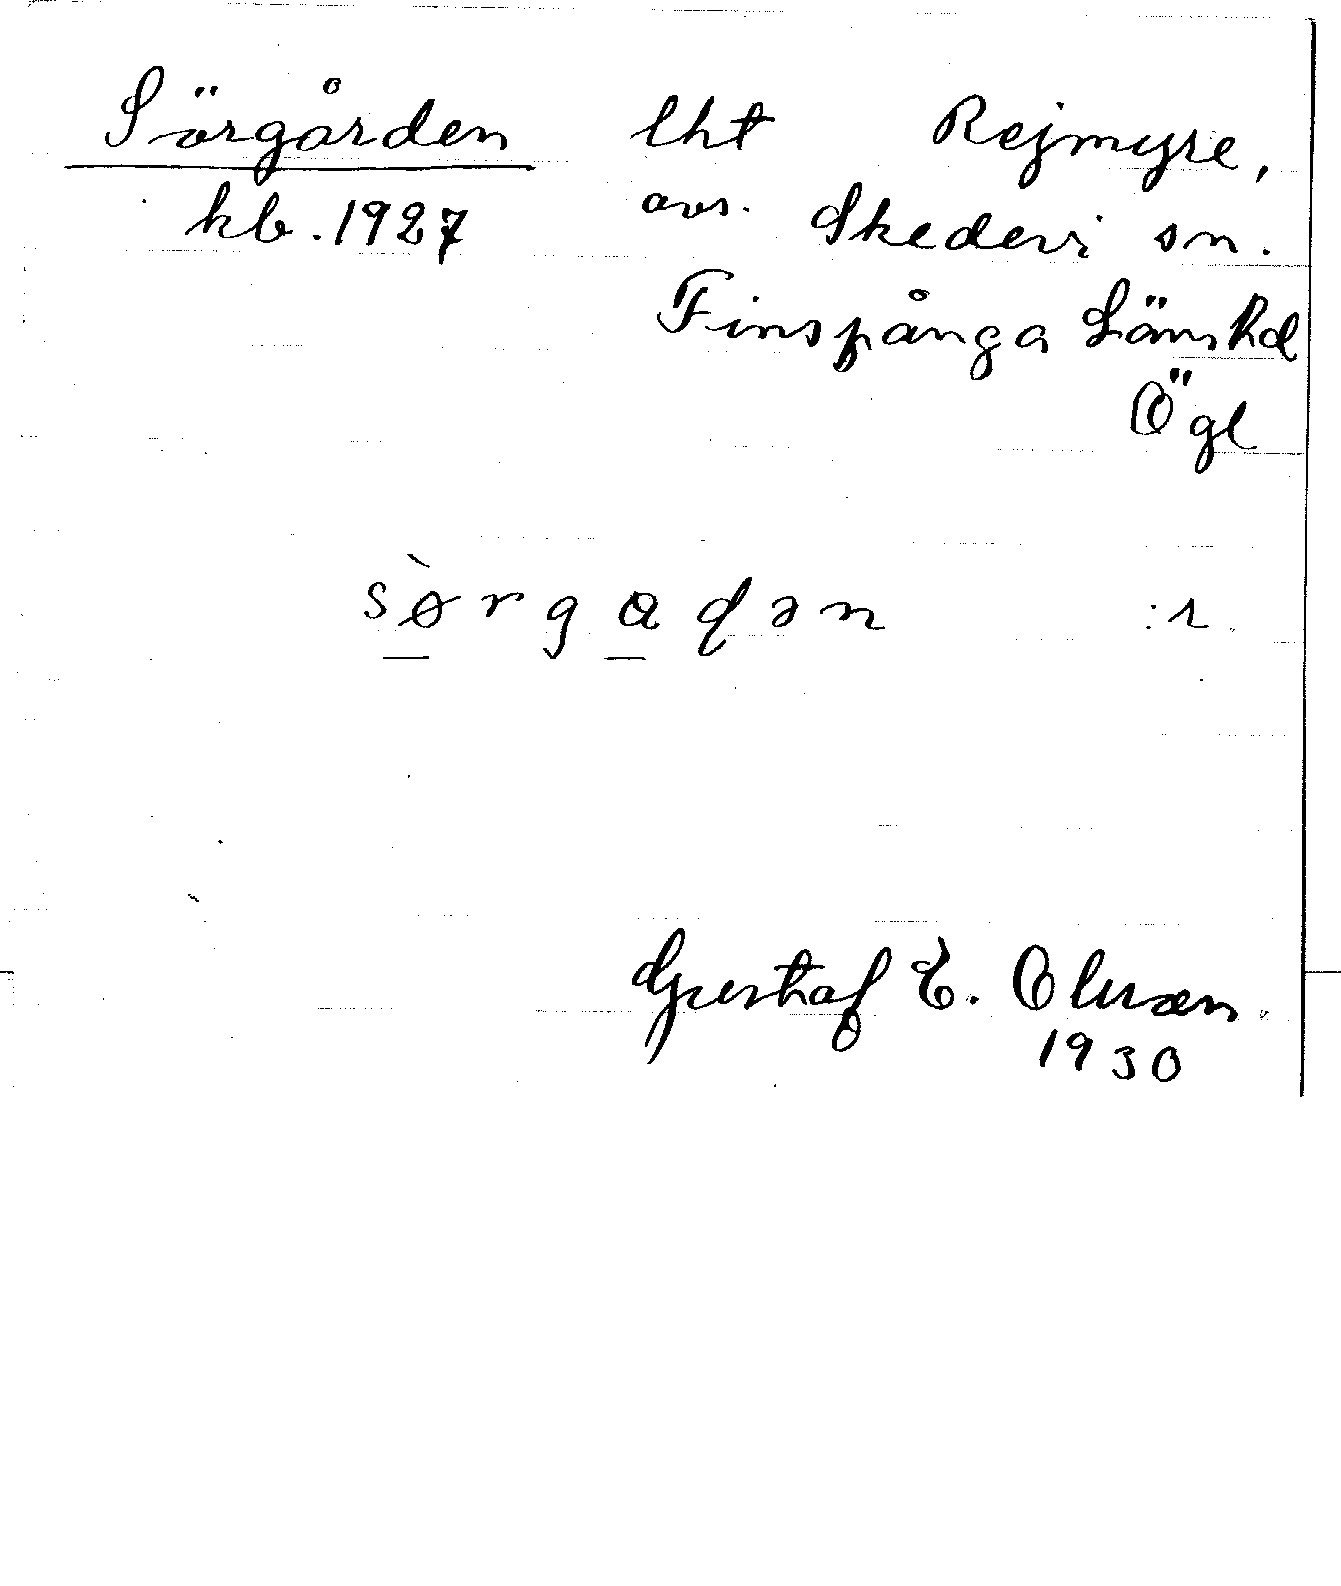 Sörgården lht Rejmyre,
kb. 1927 avs. Skedevi sn.
Finspånga Läns hd
Ögl
sø̀rgadən :1
Gustaf E. Olsson.
1930